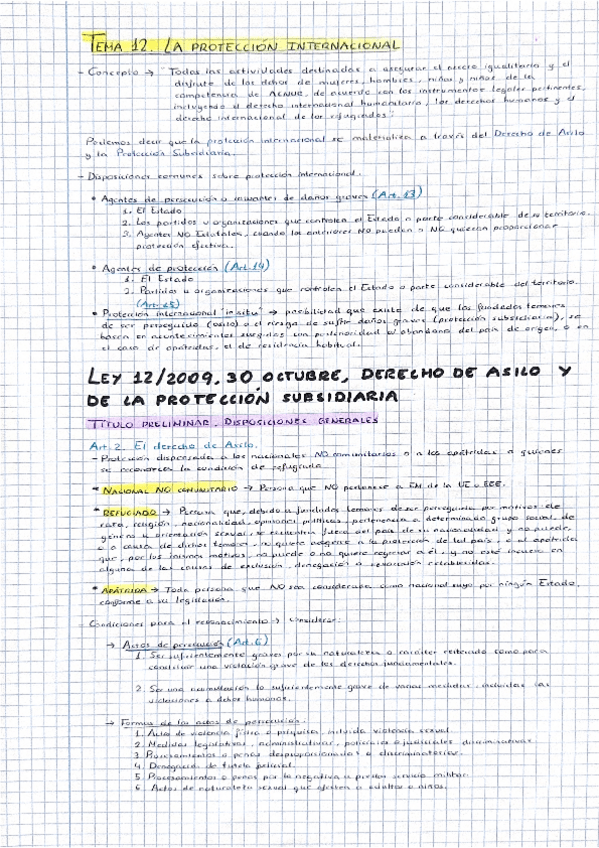 TEMA 12. LA PROTECCIÓN INTERNACIONAL
- Concepto → "Todas las actividades destinadas a asegurar el acceso igualitario y el
disfrute de los dchos de mujeres, hombres, niñas y niños de la
competencia de ACNUR, de acuerdo con los instrumentos legales pertinentes,
incluyendo el derecho internacional humanitario, los derechos humanos y el
derecho internacional de los refugiados".
Podemos decir que la protección internacional se materializa a través del Derecho de Asilo
y la Protección Subsidiaria.
- Disposiciones comunes sobre protección internacional.
• Agentes de persecución o causantes de daños graves (Art. 13)
1. El Estado
2. Los partidos u organizaciones que controlen el Estado o parte considerable de su territorio.
3. Agentes NO Estatales, cuando los anteriores NO pueden o NO quieran proporcionar
protección efectiva.
• Agentes de protección (Art. 14)
1. El Estado
2. Partidos u organizaciones que controlen el Estado o parte considerable del territorio
(Art. 15)
• Protección internacional "in situ" → posibilidad que existe de que los fundados temores
de ser perseguido (asilo) o el riesgo de sufrir daños graves (protección subsidiaria), se
basen en acontecimientos surgidos con posterioridad al abandono del país de origen, o en
el caso de apátridas, el de residencia habitual.
LEY 12/2009, 30 OCTUBRE, DERECHO DE ASILO Y
DE LA PROTECCIÓN SUBSIDIARIA
TÍTULO PRELIMINAR. DISPOSICIONES GENERALES
Art. 2. El derecho de Asilo.
- Protección dispensada a los nacionales NO comunitarios o a los apátridas a quienes
se reconozca la condición de refugiado
• NACIONAL NO COMUNITARIO → Persona que NO pertenece a EM de la UE o EEE.
• REFUGIADO → Persona que, debido a fundados temores de ser perseguida por motivos de
raza, religión, nacionalidad, opiniones políticas, pertenencia a determinado grupo social, de
género u orientación sexual, se encuentra fuera del país de su nacionalidad y no puede,
o a causa de dichos temores, no quiere acogerse a la protección de tal país, o al apátrida
que, por los mismos motivos, no puede o no quiere regresar a él, y no esté incurso en
alguna de las causas de exclusión, denegación o revocación establecidas.
• APÁTRIDA → Toda persona que NO sea considerada como nacional suyo por ningún Estado,
conforme a su legislación.
- Condiciones para el reconocimiento → Considerar:
→ Actos de persecución (Art. 6)
1. Ser suficientemente graves por su naturaleza o carácter reiterado como para
constituir una violación grave de los derechos fundamentales.
2. Ser una acumulación lo suficientemente grave de varias medidas, incluidas las
violaciones a dchos humanos.
→ Formas de los actos de persecución:
1. Actos de violencia física o psíquica, incluida violencia sexual
2. Medidas legislativas, administrativas, policiales o judiciales discriminativas.
3. Procesamientos o penas desproporcionadas o discriminatorias.
4. Denegación de tutela judicial.
5. Procesamientos o penas por la negativa a prestar servicio militar.
6. Actos de naturaleza sexual que afecten a adultos o niños.